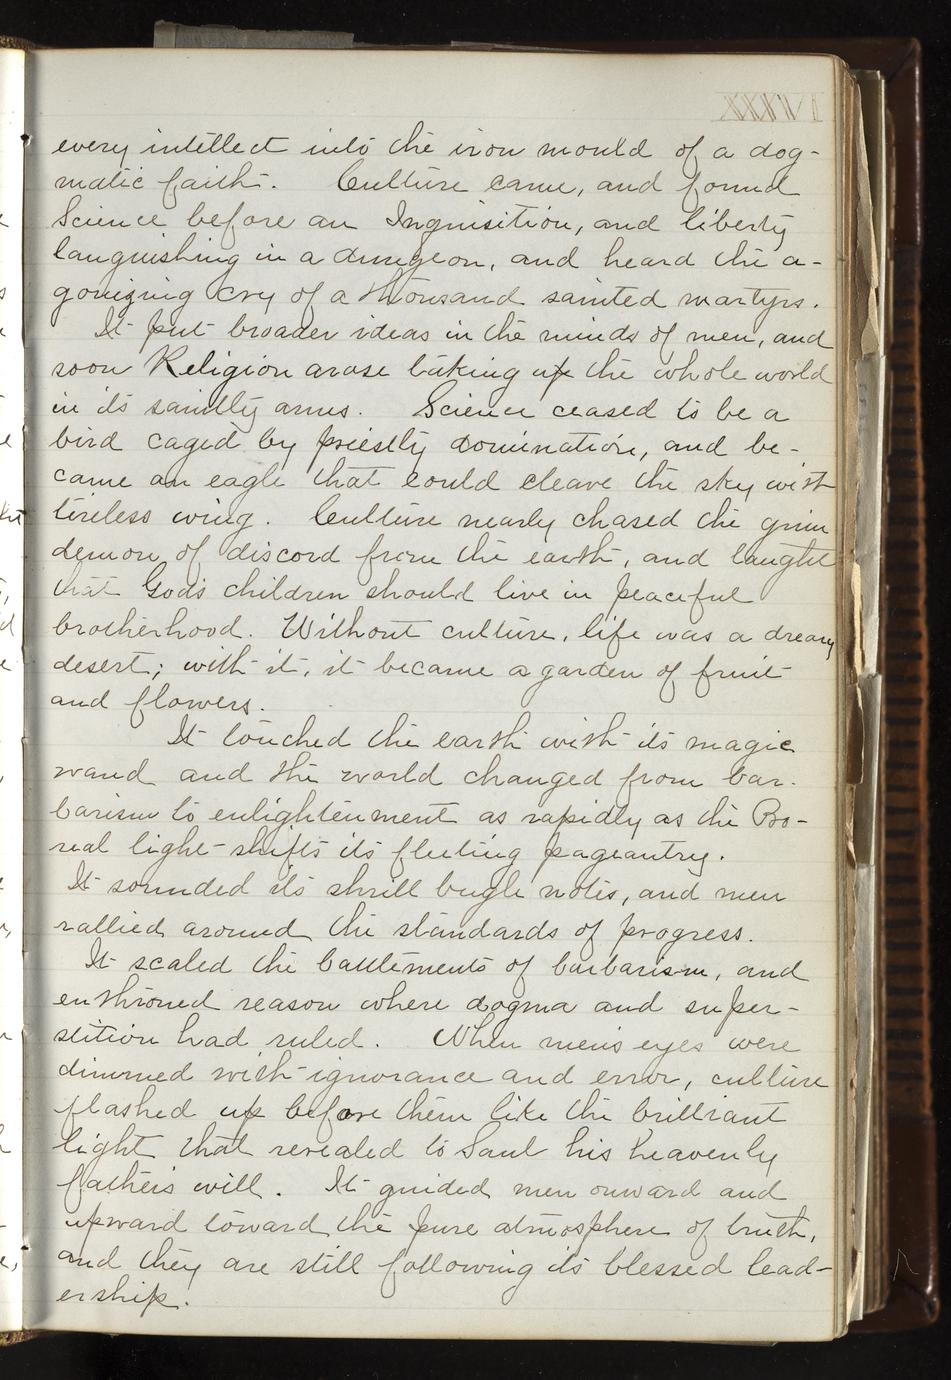 XXXXVI
every intellect into the iron mould of a dog-
matic faith. Culture came, and found
Science before an Inquisition, and liberty
languishing in a dungeon, and heard the a-
gonizing cry of a thousand sainted martyrs.
It put broader ideas in the minds of men, and
soon Religion arose taking up the whole world
in its saintly arms. Science ceased to be a
bird caged by priestly domination, and be-
came an eagle that could cleave the sky with
tireless wing. Culture nearly chased the grim
demon of discord from the earth, and taught
that God's children should live in peaceful
brotherhood. Without culture, life was a dreary
desert; with it, it became a garden of fruit
and flowers.
It touched the earth with its magic
wand and the world changed from bar-
barism to enlightenment as rapidly as the Bo-
real light shifts its fleeting pageantry.
It sounded its shrill bugle notes, and men
rallied around the standards of progress.
It scaled the battlements of barbarism, and
enthroned reason where dogma and super-
stition had ruled. When men's eyes were
dimmed with ignorance and error, culture
flashed up before them like the brilliant
light that revealed to Saul his Heavenly
father's will. It guided men onward and
upward toward the pure atmosphere of truth,
and they are still following its blessed lead-
ership.